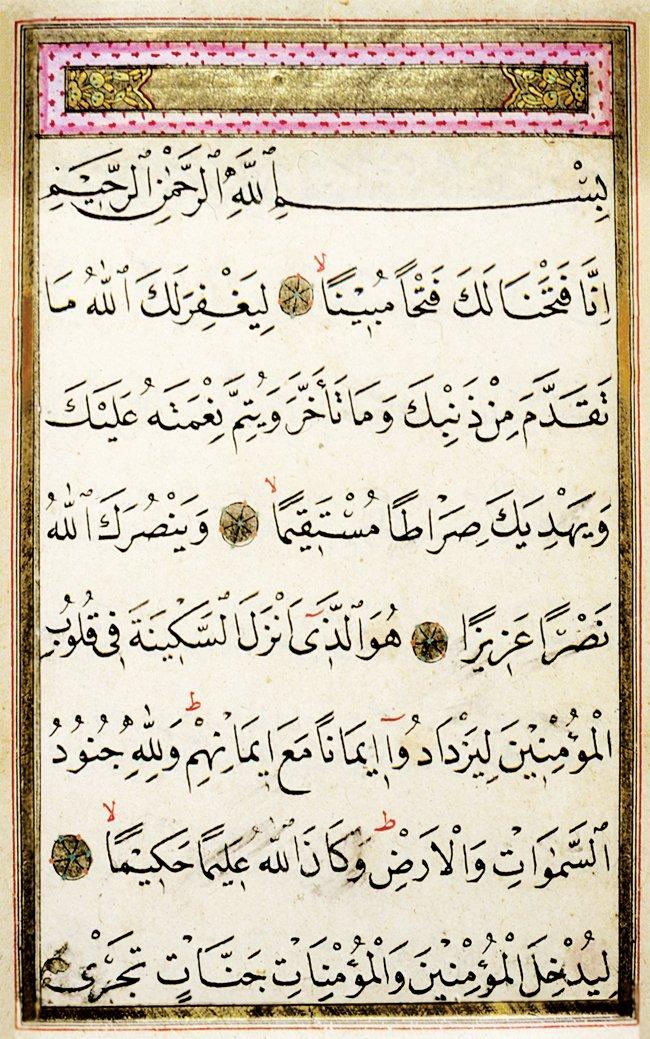 بِسْمِ ٱللّٰهِ ٱلرَّحْمٰنِ ٱلرَّحِيْمِ
اِنَّا فَتَحْنَا لَكَ فَتْحًا مُبِيْنًا ۙ لِيَغْفِرَ لَكَ ٱللّٰهُ مَا
تَقَدَّمَ مِنْ ذَنْبِكَ وَمَا تَأَخَّرَ وَيُتِمَّ نِعْمَتَهُ عَلَيْكَ
وَيَهْدِيَكَ صِرَاطًا مُسْتَقِيْمًا ۙ وَيَنْصُرَكَ ٱللّٰهُ
نَصْرًا عَزِيْزًا هُوَ ٱلَّذِىٓ اَنْزَلَ ٱلسَّكِيْنَةَ فِى قُلُوبِ
الْمُؤْمِنِيْنَ لِيَزْدَادُوٓا اِيمَانًا مَعَ اِيمَانِهِمْ ؕ وَلِلّٰهِ جُنُودُ
ٱلسَّمٰوَاتِ وَالْاَرْضِ ؕ وَكَانَ ٱللّٰهُ عَلِيمًا حَكِيْمًا ۙ
لِيُدْخِلَ الْمُؤْمِنِيْنَ وَالْمُؤْمِنَاتِ جَنَّاتٍ تَجْرِى